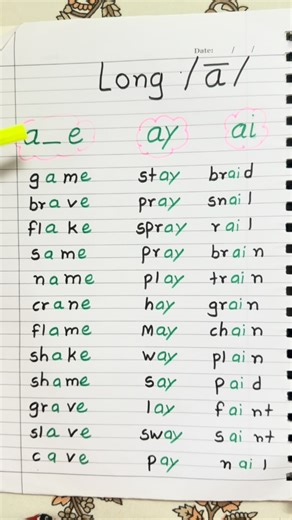 Date: / /
Long /ā/
a_e ay ai
game stay braid
brave pray snail
flake spray rail
same pray brain
name play train
crane hay grain
flame may chain
shake way plain
shame say paid
grave lay faint
slave sway saint
cave pay nail